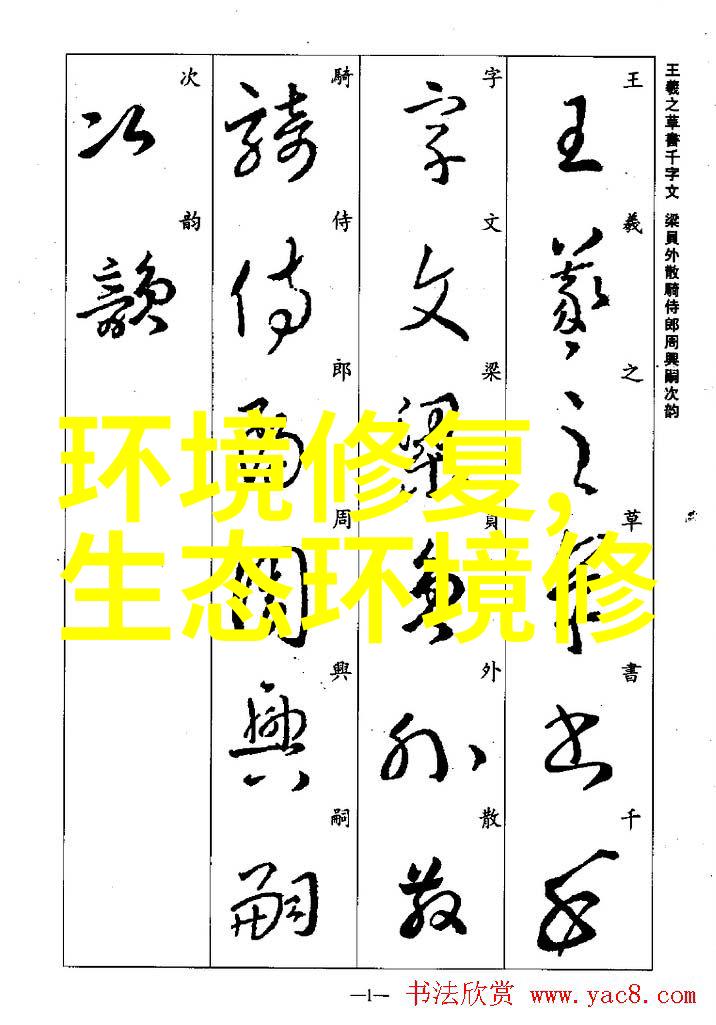 王羲之草書千字文 梁員外散騎侍郎周興嗣次韵
王羲之草書千
字文梁員外散
騎侍郎周興嗣
次韵
环境修复，
生态环境修
—1—
书法欣赏 www.yac8.com